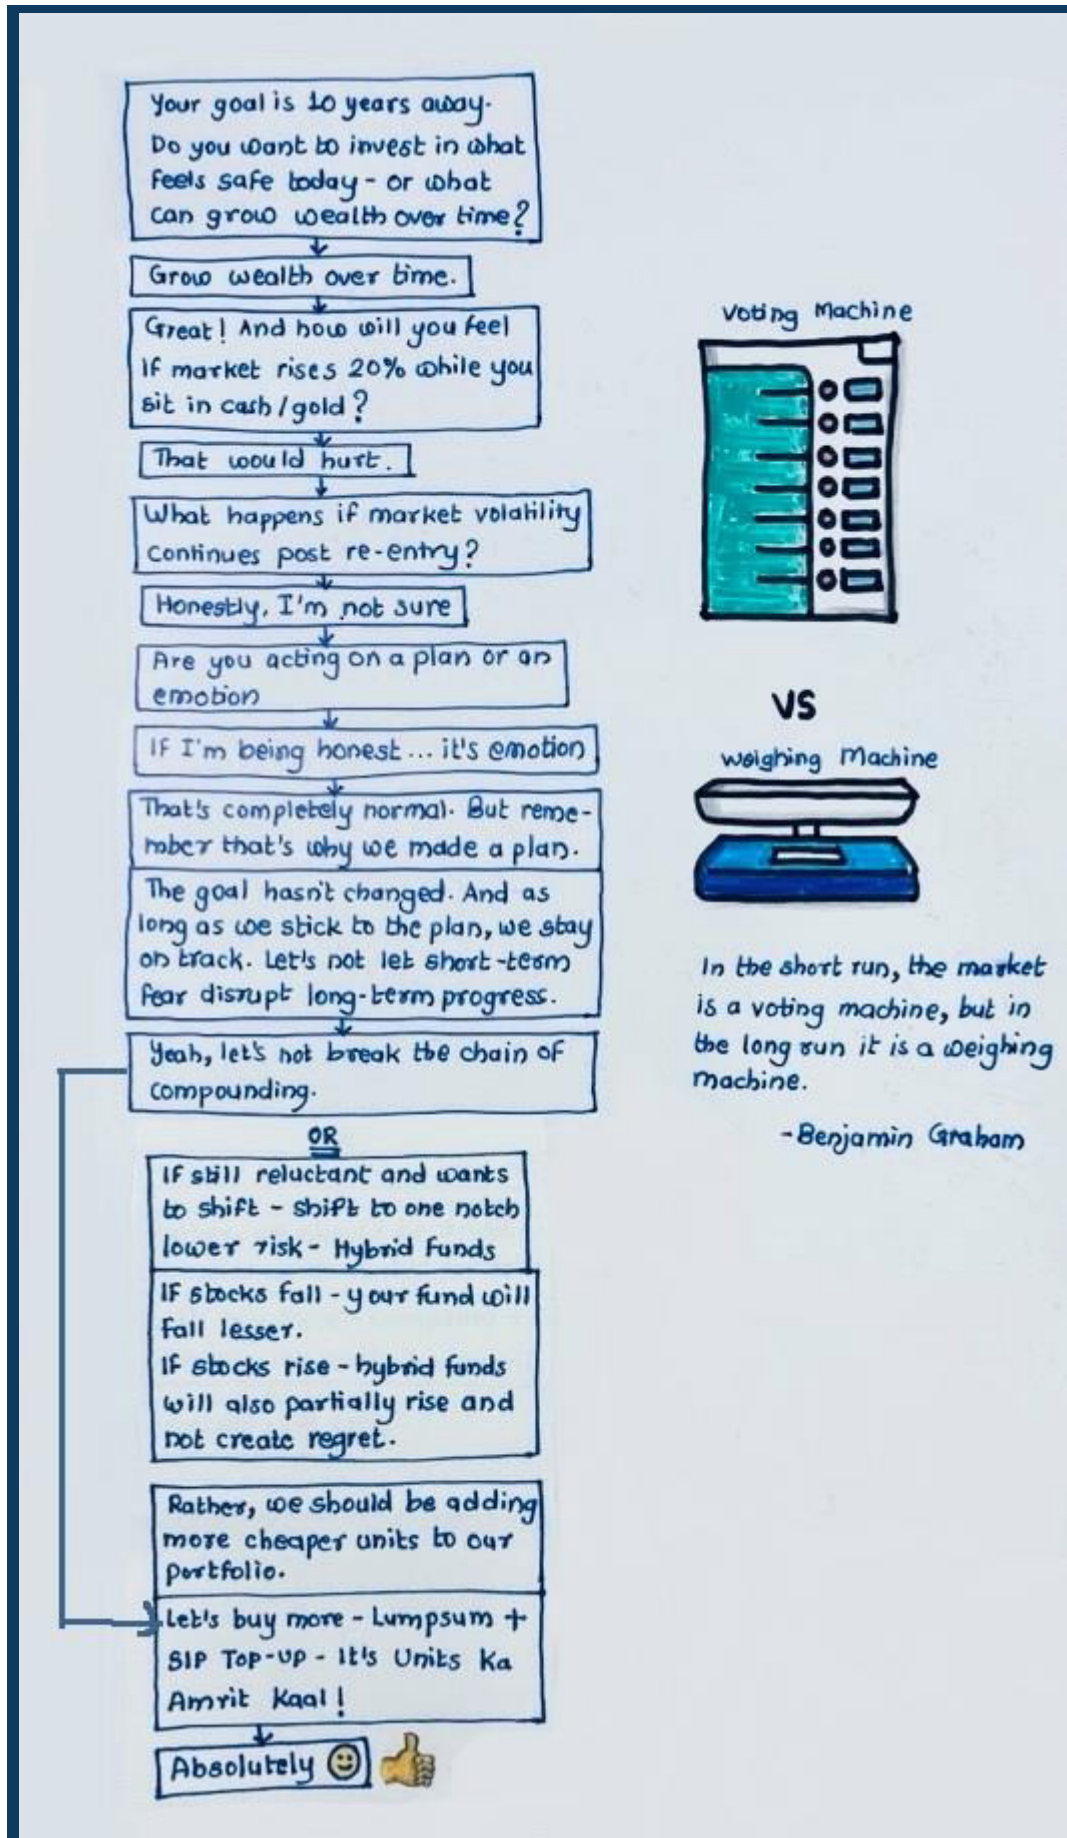 Your goal is 10 years away.
Do you want to invest in what
feels safe today - or what
can grow wealth over time?
Grow wealth over time.
Great! And how will you feel
If market rises 20% while you
sit in cash/gold?
That would hurt.
What happens if market volatility
continues post re-entry?
Honestly, I'm not sure
Are you acting on a plan or an
emotion
If I'm being honest... it's emotion
That's completely normal. But reme-
mber that's why we made a plan.
The goal hasn't changed. And as
long as we stick to the plan, we stay
on track. Let's not let short-term
fear disrupt long-term progress.
Yeah, let's not break the chain of
compounding.
OR
If still reluctant and wants
to shift - shift to one notch
lower risk - Hybrid Funds
If stocks fall - your fund will
fall lesser.
If stocks rise - hybrid funds
will also partially rise and
not create regret.
Rather, we should be adding
more cheaper units to our
portfolio.
Let's buy more - Lumpsum +
SIP Top-up - It's Units Ka
Amrit Kaal!
Absolutely
Voting Machine
VS
Weighing Machine
In the short run, the market
is a voting machine, but in
the long run it is a weighing
machine.
-Benjamin Graham